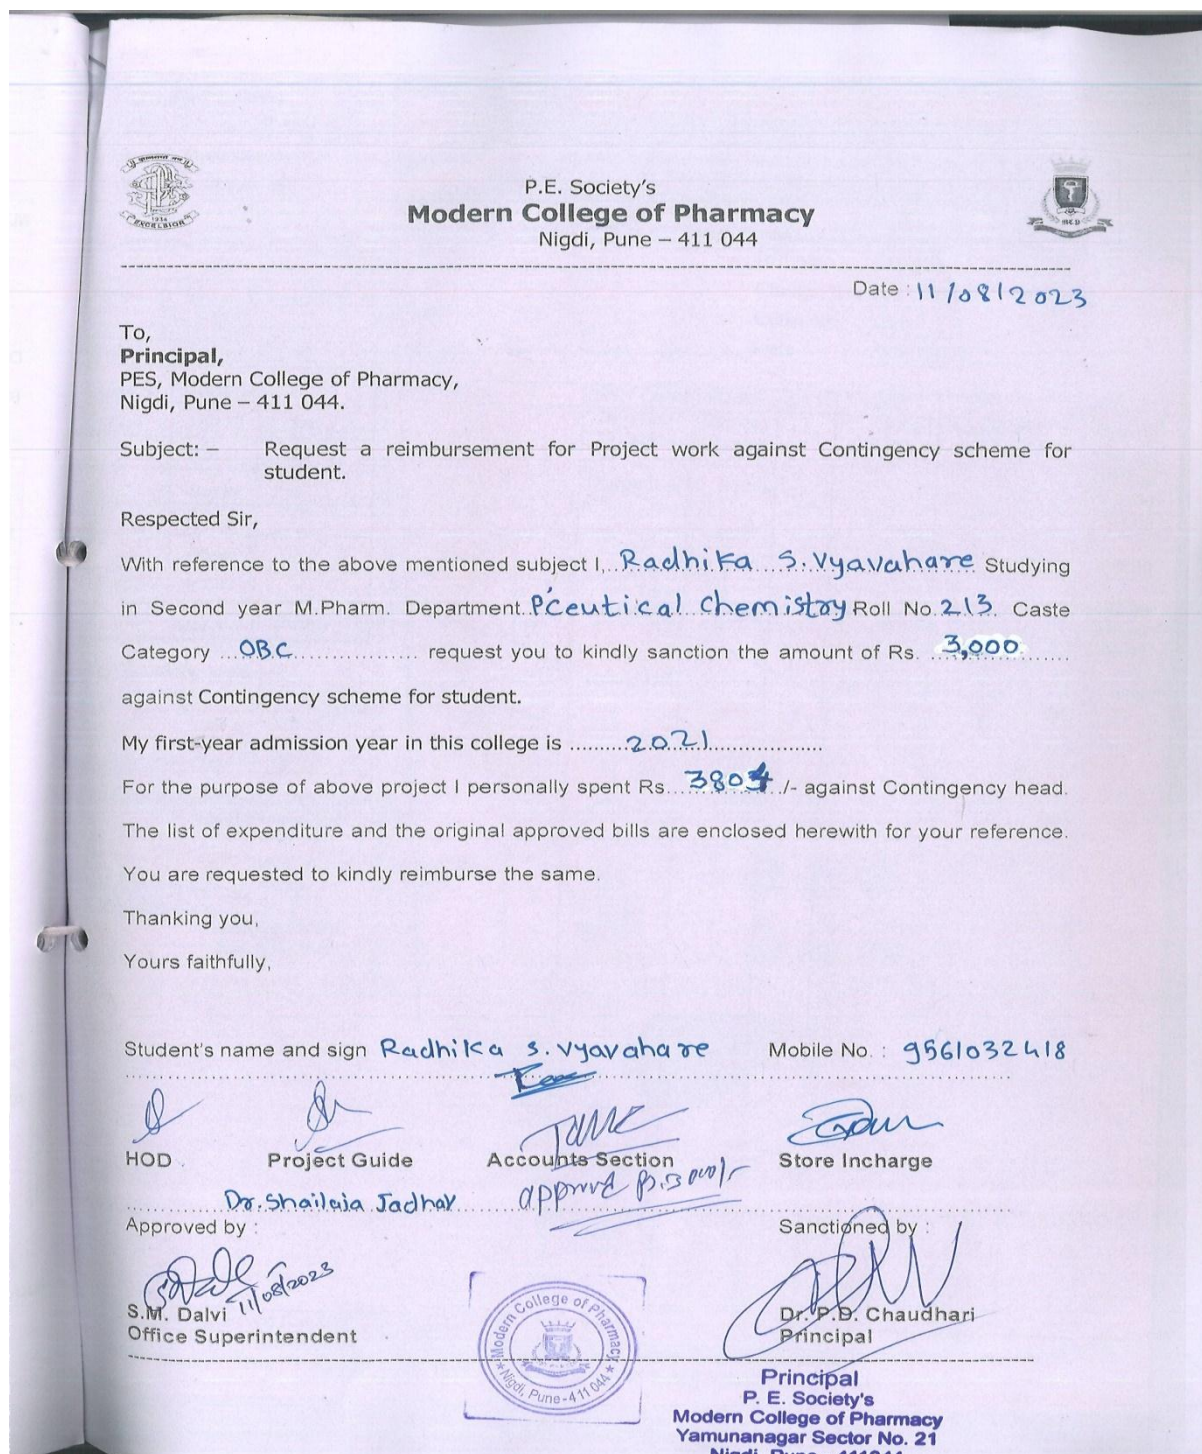 P.E. Society's
Modern College of Pharmacy
Nigdi, Pune – 411 044
EXCELSIOR
Date : 11/08/2023
To,
Principal,
PES, Modern College of Pharmacy,
Nigdi, Pune – 411 044.
Subject: – Request a reimbursement for Project work against Contingency scheme for
student.
Respected Sir,
With reference to the above mentioned subject I, Radhika S. Vyavahare Studying
in Second year M.Pharm. Department P'Ceutical Chemistry Roll No. 213 Caste
Category OBC request you to kindly sanction the amount of Rs. 3,000
against Contingency scheme for student.
My first-year admission year in this college is 2021
For the purpose of above project I personally spent Rs. 3804 /- against Contingency head.
The list of expenditure and the original approved bills are enclosed herewith for your reference.
You are requested to kindly reimburse the same.
Thanking you,
Yours faithfully,
Student's name and sign Radhika S. Vyavahare Mobile No. : 9561032418
HOD Project Guide Accounts Section Store Incharge
Dr. Shailaja Jadhav
Approved by : Sanctioned by :
11/08/2023
S.M. Dalvi Dr. P.D. Chaudhari
Office Superintendent Principal
Modern College of Pharmacy
Nigdi, Pune-411 044
Principal
P. E. Society's
Modern College of Pharmacy
Yamunanagar Sector No. 21